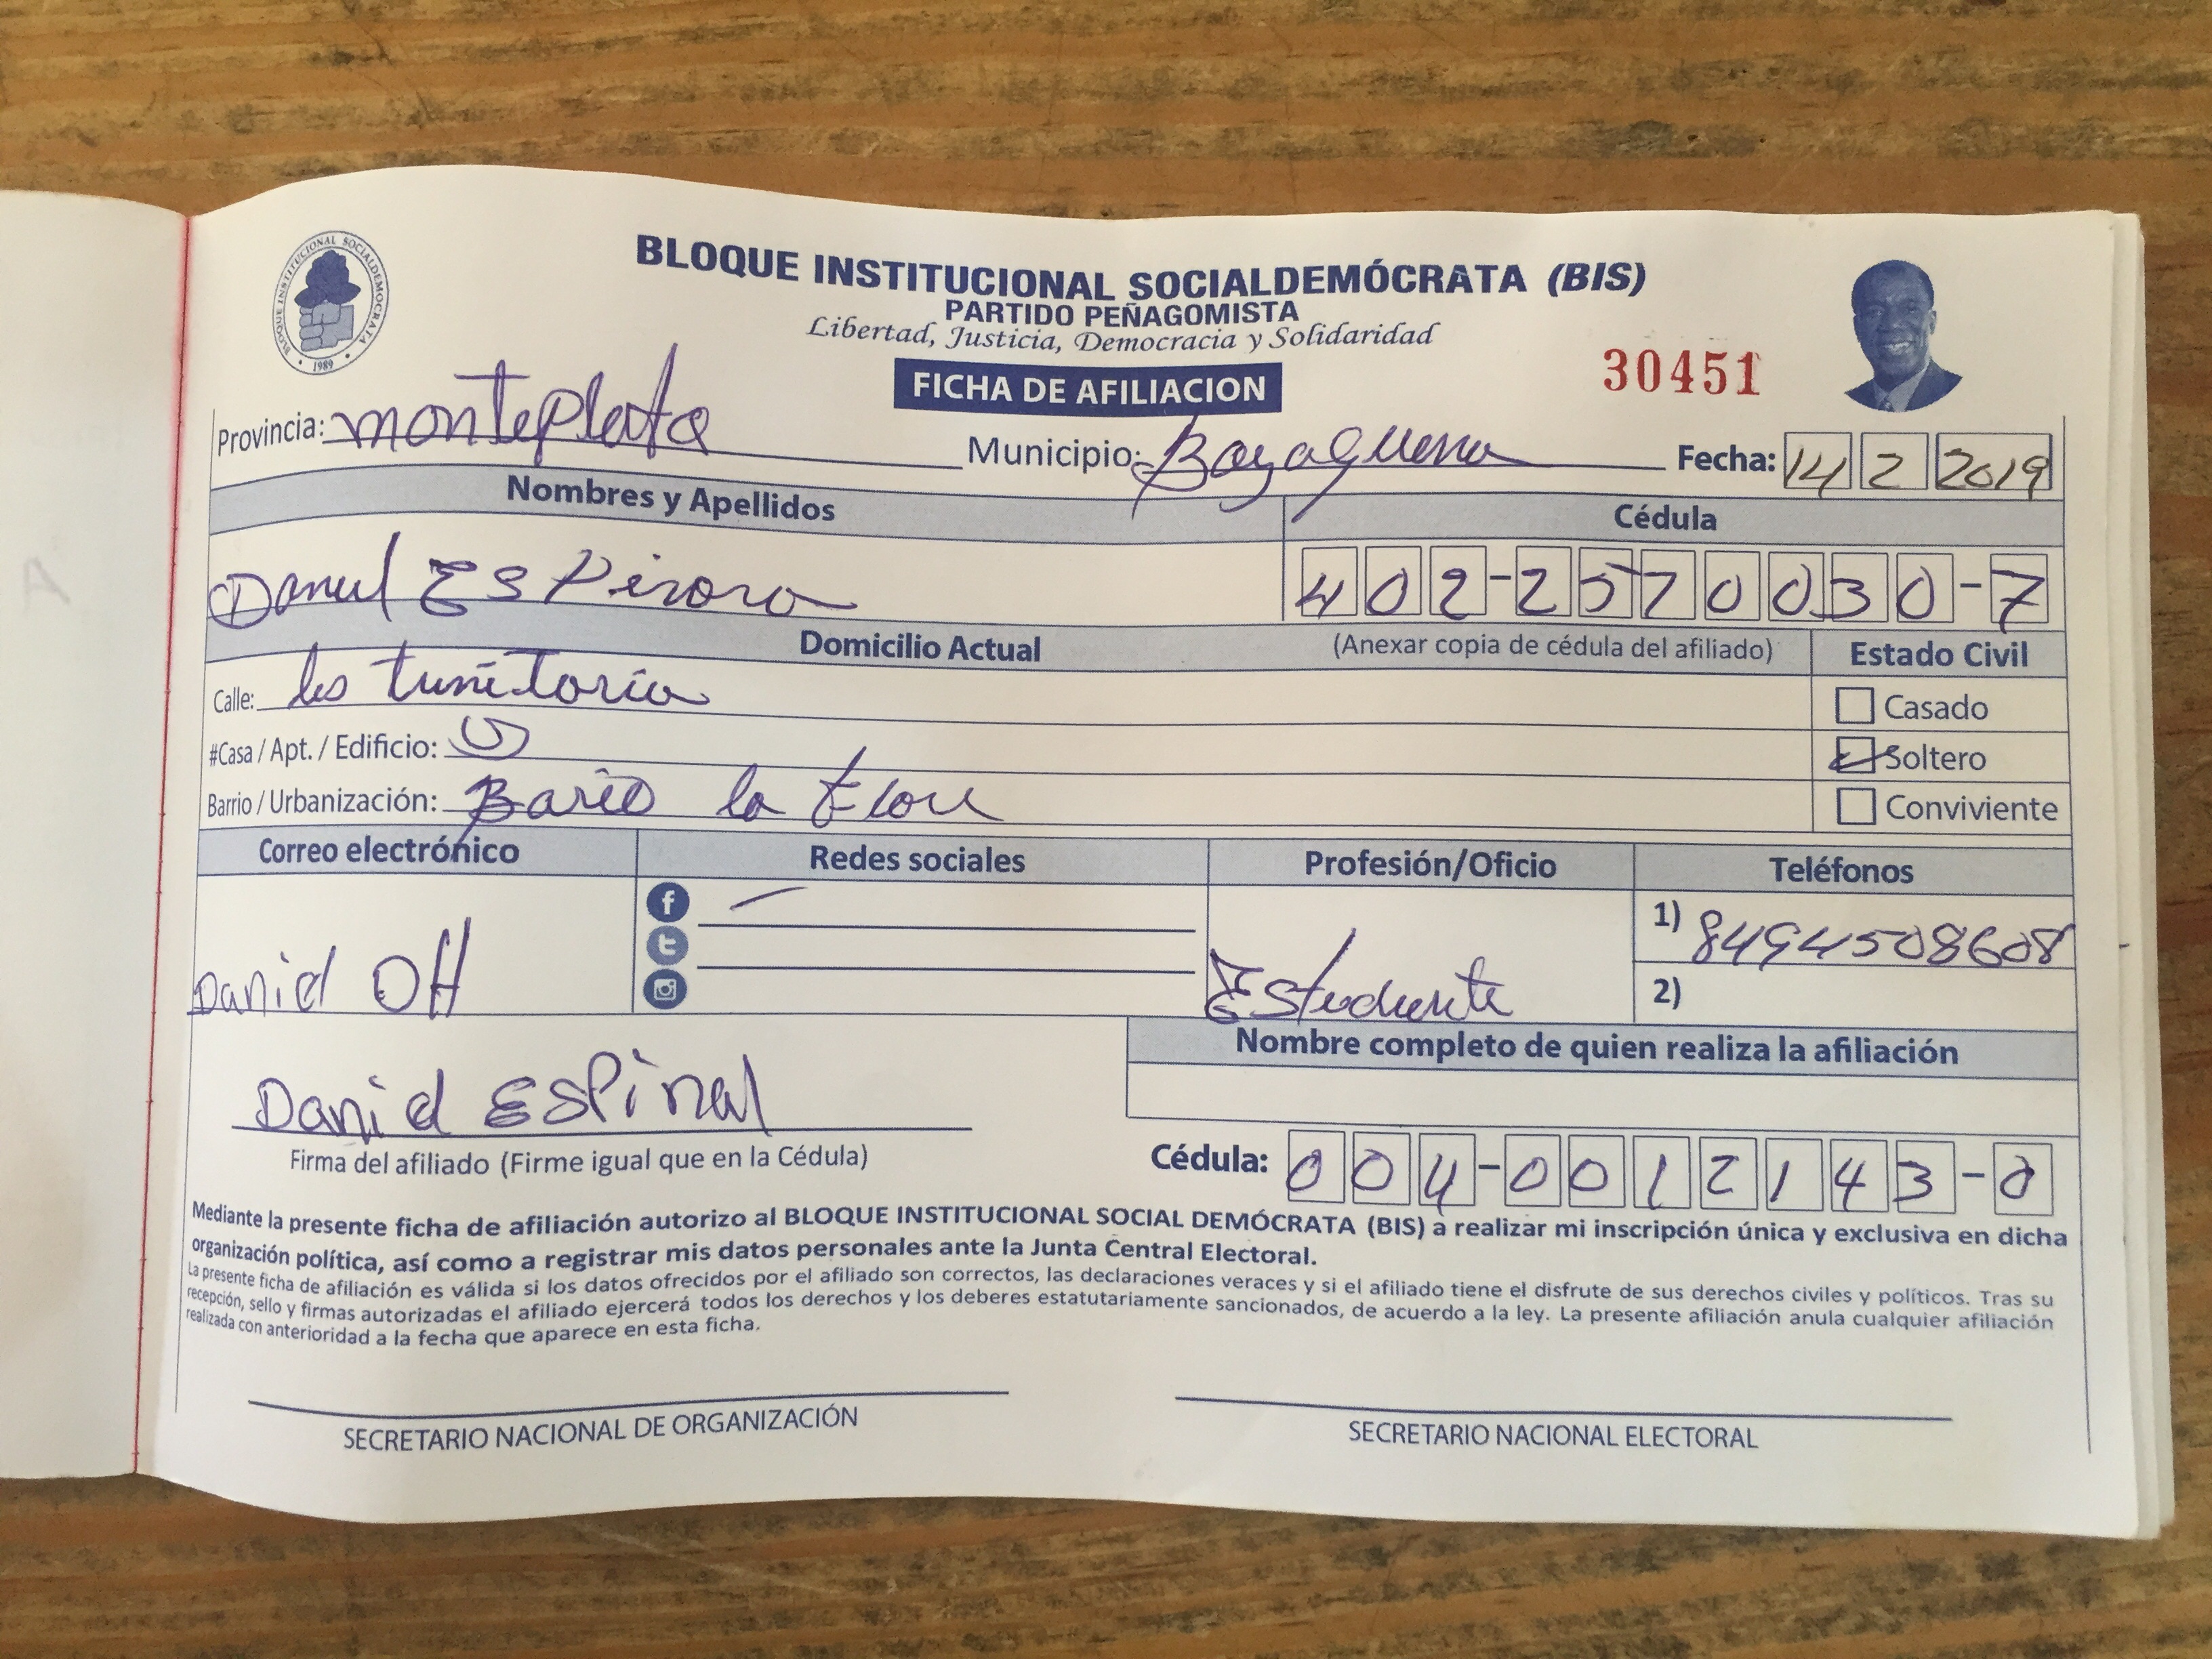 BLOQUE INSTITUCIONAL SOCIALDEMOCRATA
1989
BLOQUE INSTITUCIONAL SOCIALDEMÓCRATA (BIS)
PARTIDO PEÑAGOMISTA
Libertad, Justicia, Democracia y Solidaridad
FICHA DE AFILIACION
30451
Provincia: monteplata Municipio: Fecha: 14 2 2019
Nombres y Apellidos Cédula
402-2570030-7
Domicilio Actual (Anexar copia de cédula del afiliado) Estado Civil
Calle:
Casado
#Casa / Apt. / Edificio:
Soltero
Barrio / Urbanización: Bario la
Conviviente
Correo electrónico Redes sociales Profesión/Oficio Teléfonos
1) 8494508608
Danid OH Estudiante
2)
Nombre completo de quien realiza la afiliación
Danid ESPinal
Firma del afiliado (Firme igual que en la Cédula)
Cédula: 004-0012143-0
Mediante la presente ficha de afiliación autorizo al BLOQUE INSTITUCIONAL SOCIAL DEMÓCRATA (BIS) a realizar mi inscripción única y exclusiva en dicha
organización política, así como a registrar mis datos personales ante la Junta Central Electoral.
La presente ficha de afiliación es válida si los datos ofrecidos por el afiliado son correctos, las declaraciones veraces y si el afiliado tiene el disfrute de sus derechos civiles y políticos. Tras su
recepción, sello y firmas autorizadas el afiliado ejercerá todos los derechos y los deberes estatutariamente sancionados, de acuerdo a la ley. La presente afiliación anula cualquier afiliación
realizada con anterioridad a la fecha que aparece en esta ficha.
SECRETARIO NACIONAL DE ORGANIZACIÓN
SECRETARIO NACIONAL ELECTORAL